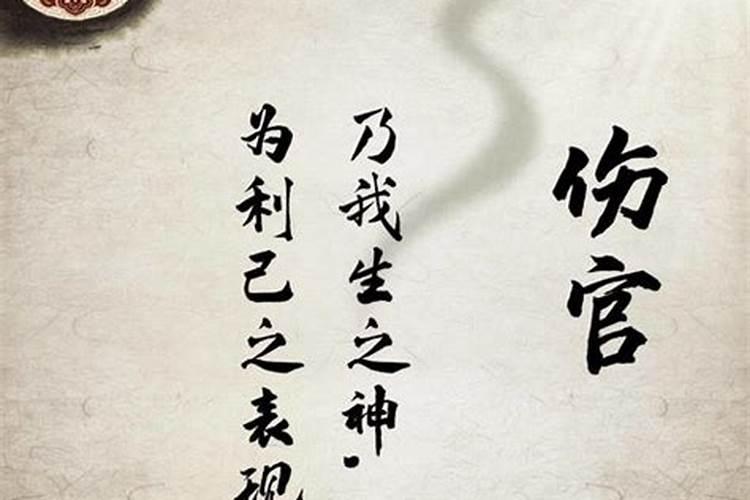 伤官
乃我生之神,
为利己之表现